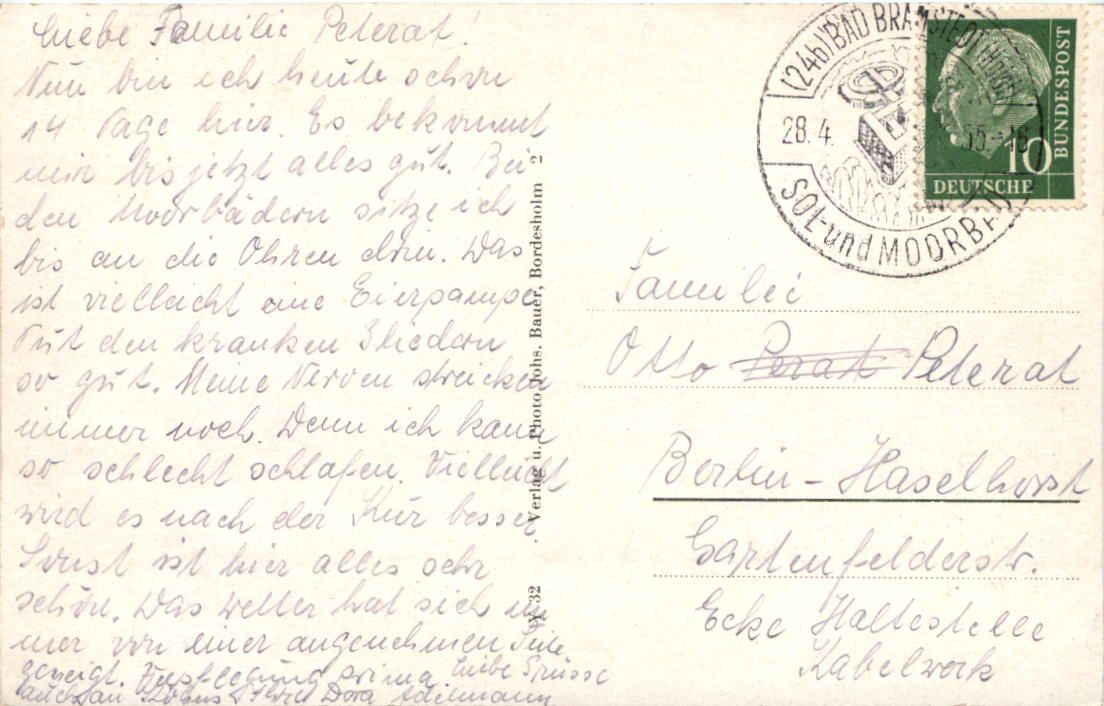 Liebe Familie Peterat!
Nun bin ich heute schon
14 Tage hier. Es bekommt
mir bis jetzt alles gut. Bei
den Moorbädern sitze ich
bis an die Ohren drin. Das
ist vielleicht eine Eierpampe
Tut den kranken Gliedern
so gut. Meine Nerven streicken
immer noch. Denn ich kann
so schlecht schlafen. Vielleicht
wird es nach der Kur besser.
Sonst ist hier alles sehr
schön. Das Wetter hat sich im
mer von einer angenehmen Seite
gezeigt. Verpflegung prima. Liebe Grüsse
auch an Ihre Dora Adelmann
V 32 Verlag u. Photo Johs. Bauer, Bordesholm 2
(24b) BAD BRAMSTEDT (HOLST)
28. 4. 55-16
SOL- und MOORBAD
DEUTSCHE BUNDESPOST
10
Familie
Otto Perat Peterat
Berlin-Haselhorst
Gartenfelderstr.
Ecke Haltestelle
Kabelwerk